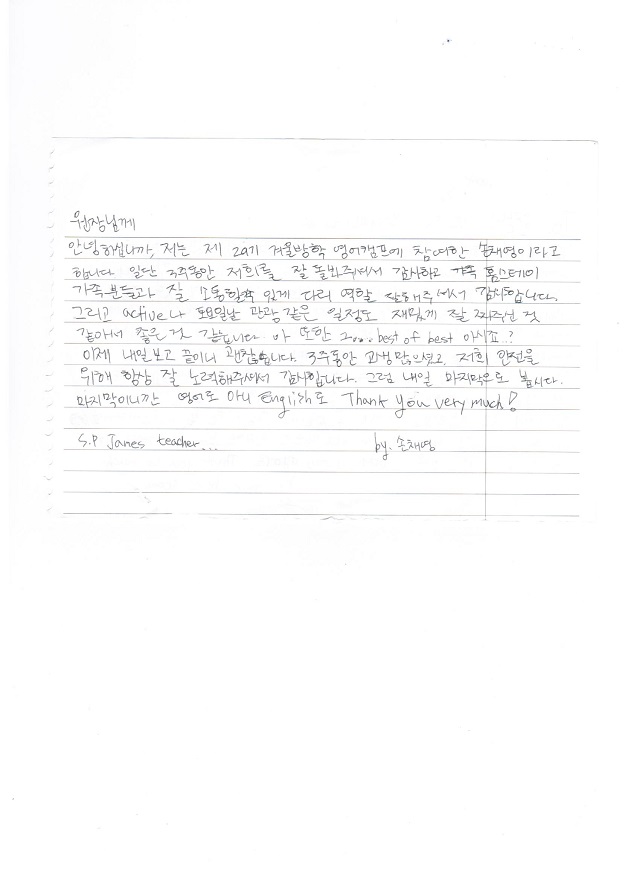 원장님께
안녕하십니까, 저는 제 29기 겨울방학 영어캠프에 참여한 손채영이라고
합니다 일단 3주동안 저희를 잘 돌봐주셔서 감사하고 가족 홈스테이
가족분들과 잘 소통할수 있게 다리 역할 잘해주셔서 감사합니다.
그리고 active나 토요일날 관광같은 일정도 재밌게 잘 짜주신 것
같아서 좋은 것 같습니다 아 또한 그... best of best 아시죠..?
이제 내일보고 끝이니 괜찮습니다. 3주동안 고생많으셨고 저희 안전을
위해 항상 잘 노력해주셔서 감사합니다. 그럼 내일 마지막으로 봅시다.
마지막이니깐 영어로 아니 English로 Thank you very much!
S.P Janes teacher... by. 손채영